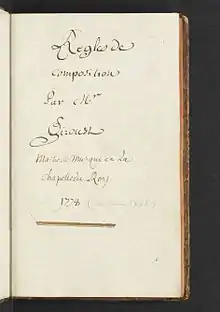 Regles de
composition
Par Mr
Giroust
Maitre de Musique en la
Chapelle du Roy
1778